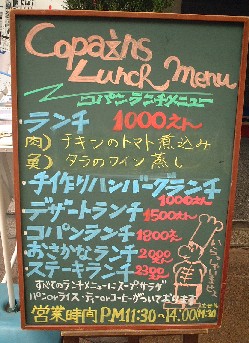 Copains
Lunch Menu
コパンランチメニュー
・ランチ 1000えん〜
肉) チキンのトマト煮込み
魚) タラのワイン蒸し
・手作りハンバーグランチ
1000えん〜
・デザートランチ 1500えん〜
・コパンランチ 1800えん
・おさかなランチ 2000えん〜
・ステーキランチ 2300えん〜
すべてのランチメニューにスープ・サラダ
パンorライス・ティーorコーヒーがついております
営業時間 P.M 11:30〜14:00